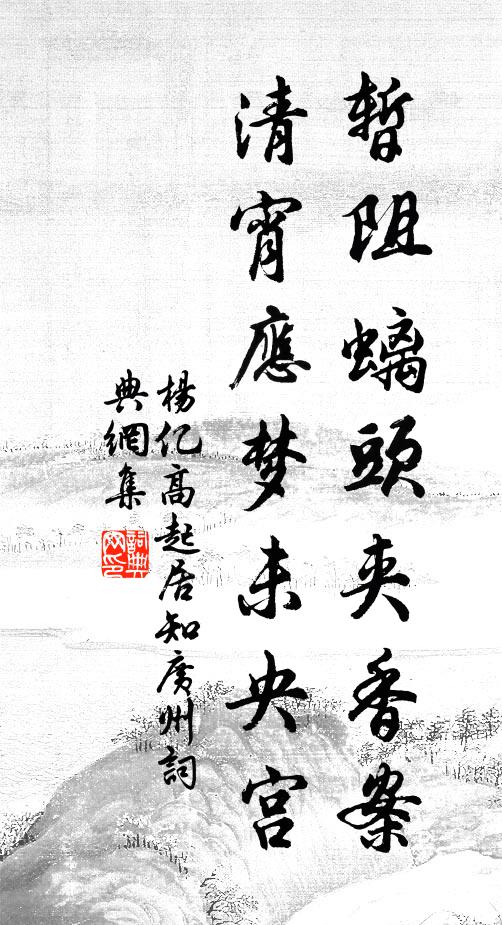 暫阻螭頭夾香案
清宵應梦未央宫
楊亿高起居知廣州詞
典網集
詞典网印